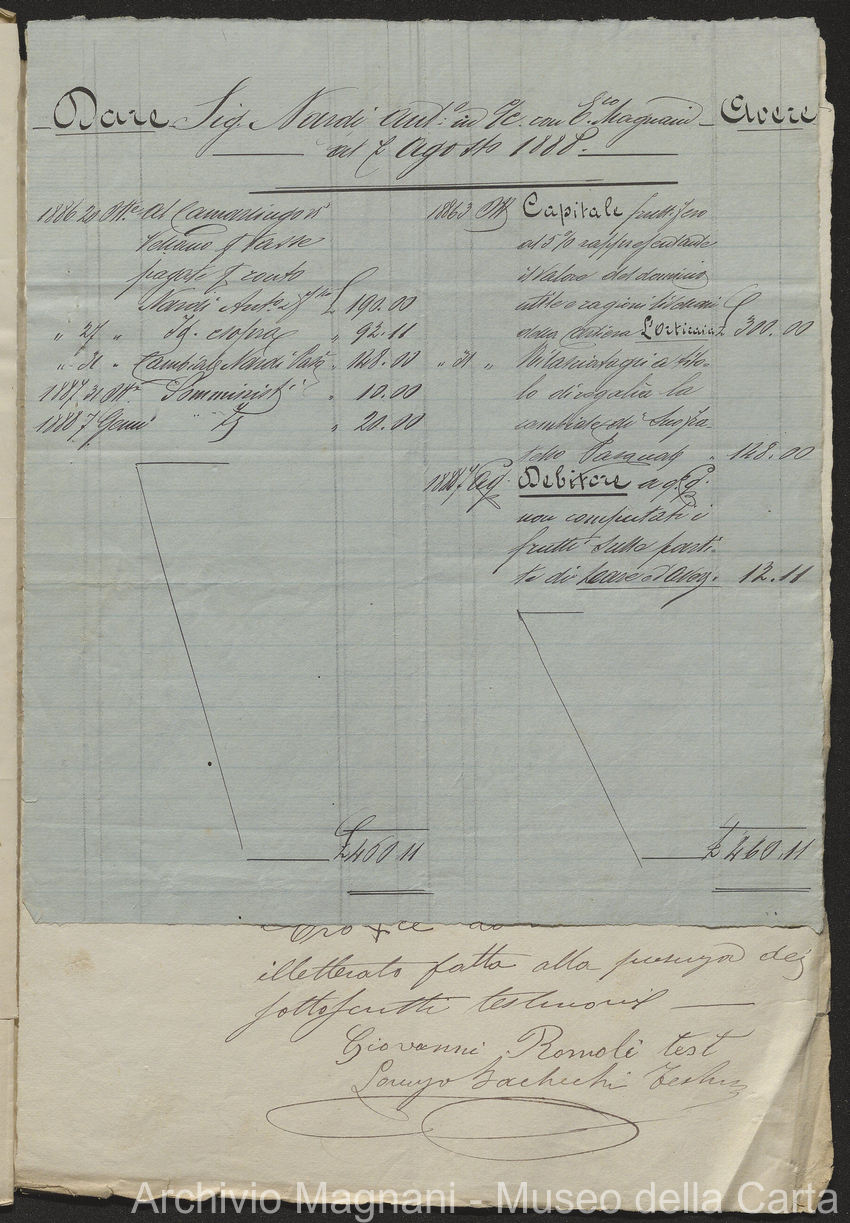 Dare Sig. Nardi Ant.° in C/c. con E.co Magnani Avere
al 7 Agosto 1888.
1886 20 Ott.e Al Camarlingo di
Vellano p Tasse
pagate p conto
Nardi Ant.° £ 190.00
" 27 " Id. c sopra " 92.11
" 31 " Cambiale Nardi " 148.00
1887 31 Ott.e Somminist.i " 10.00
1888 7 Genn.° " Id " 20.00
£ 460.11
1886 3 Ott.e Capitale fruttifero
al 5% rappresentante
il valore del dominio
utile e ragioni livellari
della Cartiera L'Orticaia £ 300.00
" 31 " Rilasciatogli a tito-
lo di regalia la
cambiale di suo fra-
tello Pasquale " 148.00
1888 7 Ag.° Debitore a q. G.°
non computati i
frutti sulle parti-
te di Dare e Avere. 12.11
£ 460.11
illetterato fatta alla presenza dei
sottoscritti testimoni
Giovanni Romoli test
Lorenzo Sachechi
Archivio Magnani - Museo della Carta